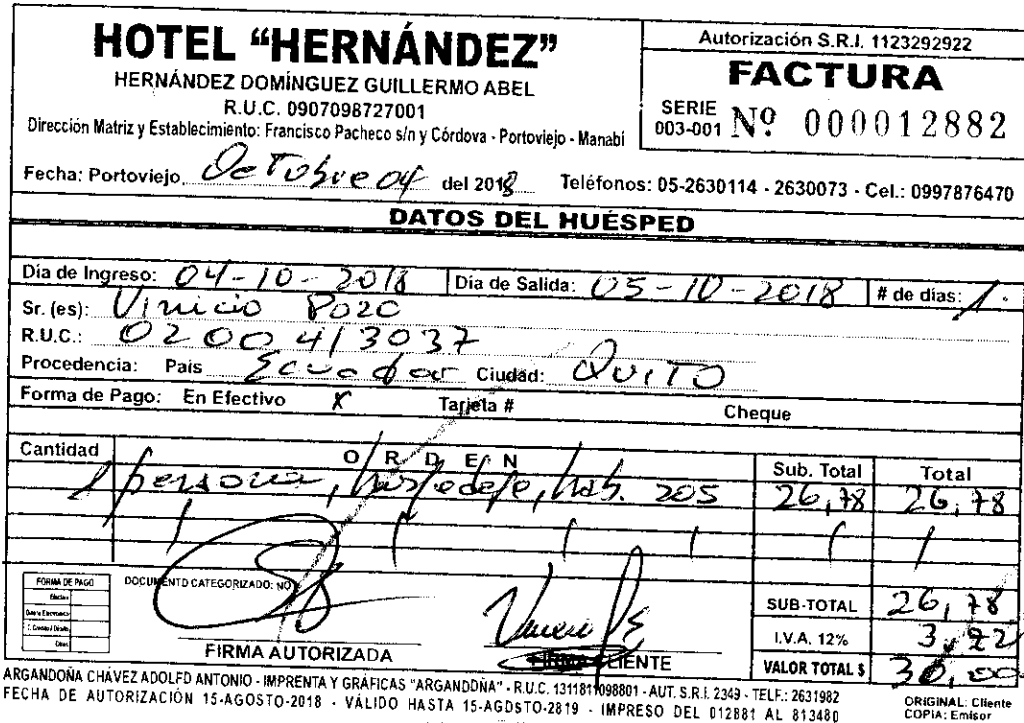 HOTEL “HERNÁNDEZ”
HERNÁNDEZ DOMÍNGUEZ GUILLERMO ABEL
R.U.C. 0907098727001
Dirección Matriz y Establecimiento: Francisco Pacheco s/n y Córdova - Portoviejo - Manabí
Autorización S.R.I. 1123292922
FACTURA
SERIE 003-001 Nº 000012882
Fecha: Portoviejo, Octubre 04 del 2018 Teléfonos: 05-2630114 - 2630073 - Cel.: 0997876470
DATOS DEL HUÉSPED
Día de Ingreso: 04-10-2018 Día de Salida: 05-10-2018 # de días: 1.
Sr. (es): Vinicio Pozo
R.U.C.: 0200413037
Procedencia: País Ecuador Ciudad: QUITO
Forma de Pago: En Efectivo X Tarjeta # Cheque
Cantidad ORDEN Sub. Total Total
1 persona, hospedaje, hab. 205 26,78 26,78
FORMA DE PAGO
DOCUMENTO CATEGORIZADO: NO
SUB-TOTAL 26,78
I.V.A. 12% 3,22
VALOR TOTAL $ 30,00
FIRMA AUTORIZADA
FIRMA CLIENTE
ARGANDOÑA CHÁVEZ ADOLFO ANTONIO - IMPRENTA Y GRÁFICAS "ARGANDOÑA" - R.U.C. 1311811098801 - AUT. S.R.I. 2349 - TELF.: 2631982
FECHA DE AUTORIZACIÓN 15-AGOSTO-2018 - VÁLIDO HASTA 15-AGOSTO-2819 - IMPRESO DEL 012881 AL 813480
ORIGINAL: Cliente
COPIA: Emisor